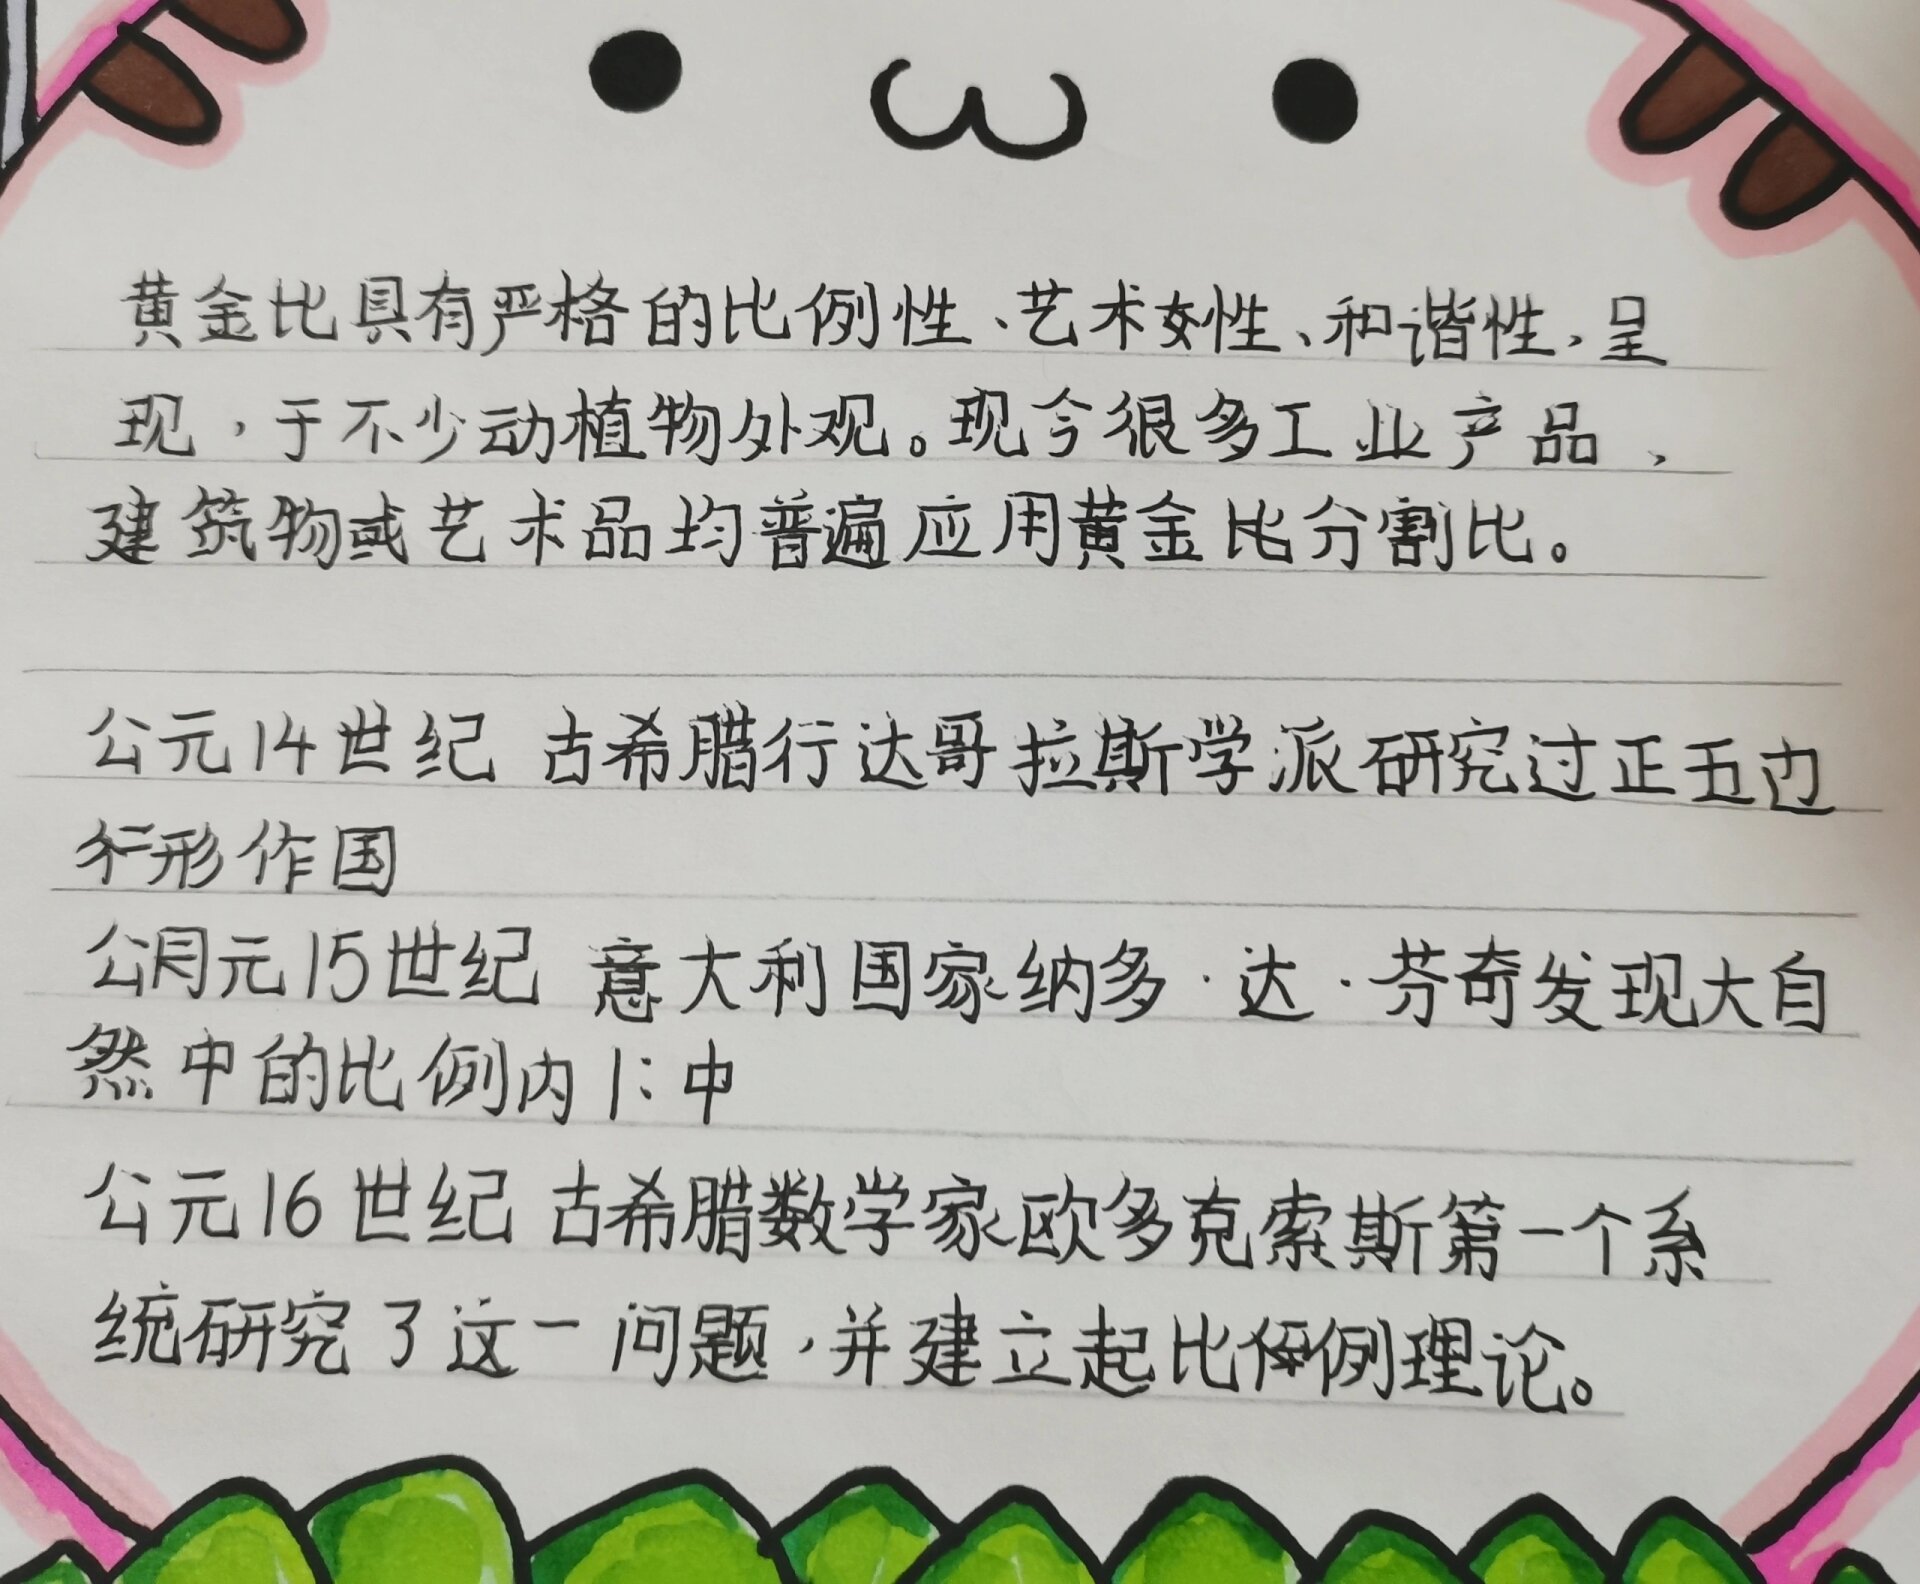 黄金比具有严格的比例性、艺术性、和谐性,呈
现,于不少动植物外观。现今很多工业产品,
建筑物或艺术品均普遍应用黄金比分割比。
公元14世纪 古希腊行达哥拉斯学派研究过正五边
形作国
公元15世纪 意大利国家纳多·达·芬奇发现大自
然中的比例内1:中
公元16世纪 古希腊数学家欧多克索斯第一个系
统研究了这一问题,并建立起比例理论。